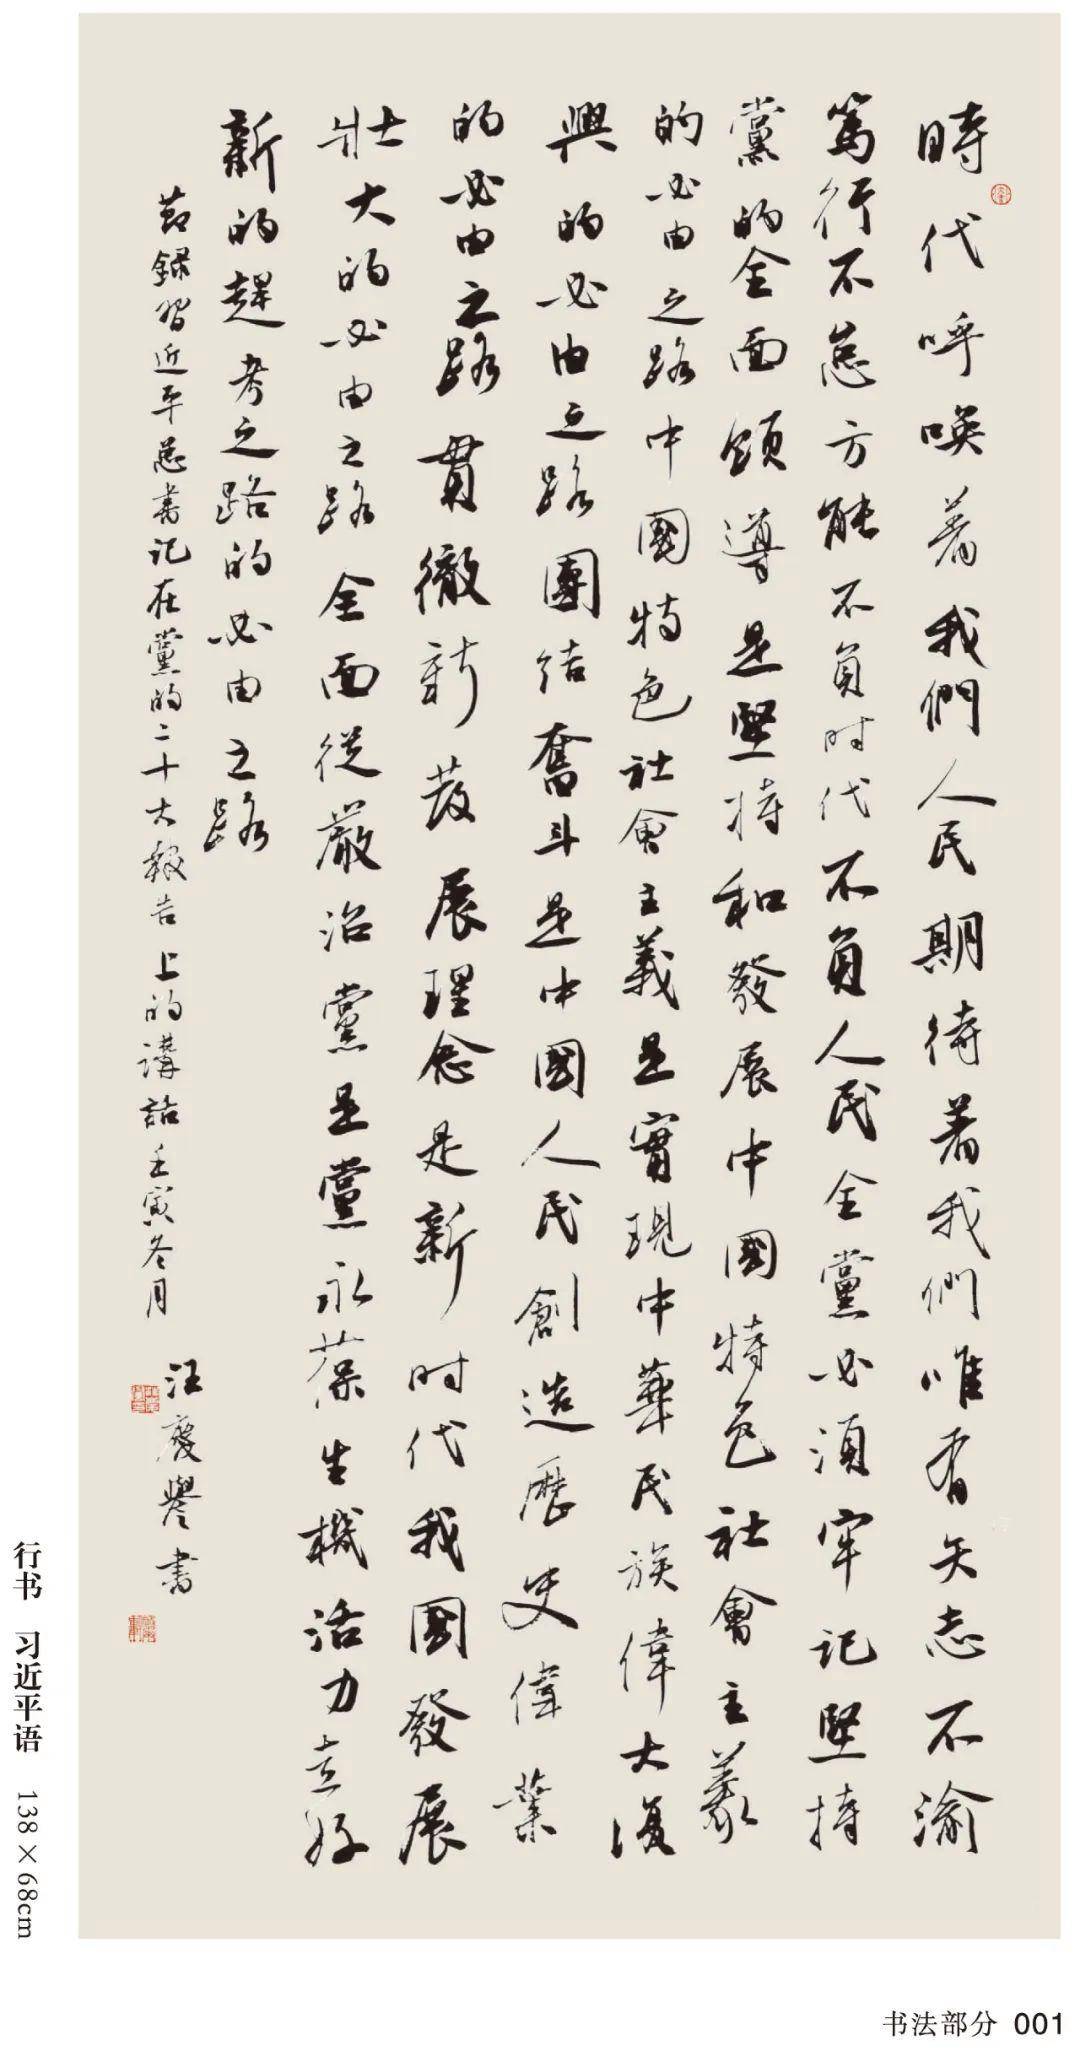 時代呼喚着我們人民期待着我們唯有矢志不渝
篤行不怠方能不負时代不負人民全黨必須牢记堅持
黨的全面領導是堅持和發展中國特色社會主義
的必由之路中國特色社會主義是實現中華民族偉大復
興的必由之路團结奮斗是中國人民創造歷史偉業
的必由之路貫徹新發展理念是新时代我國發展
壯大的必由之路全面從嚴治黨是黨永葆生機活力走好
新的趕考之路的必由之路
節錄習近平总書记在黨的二十大報告上的講話壬寅冬月
汪慶譽書
行书 习近平语 138×68cm
书法部分 001